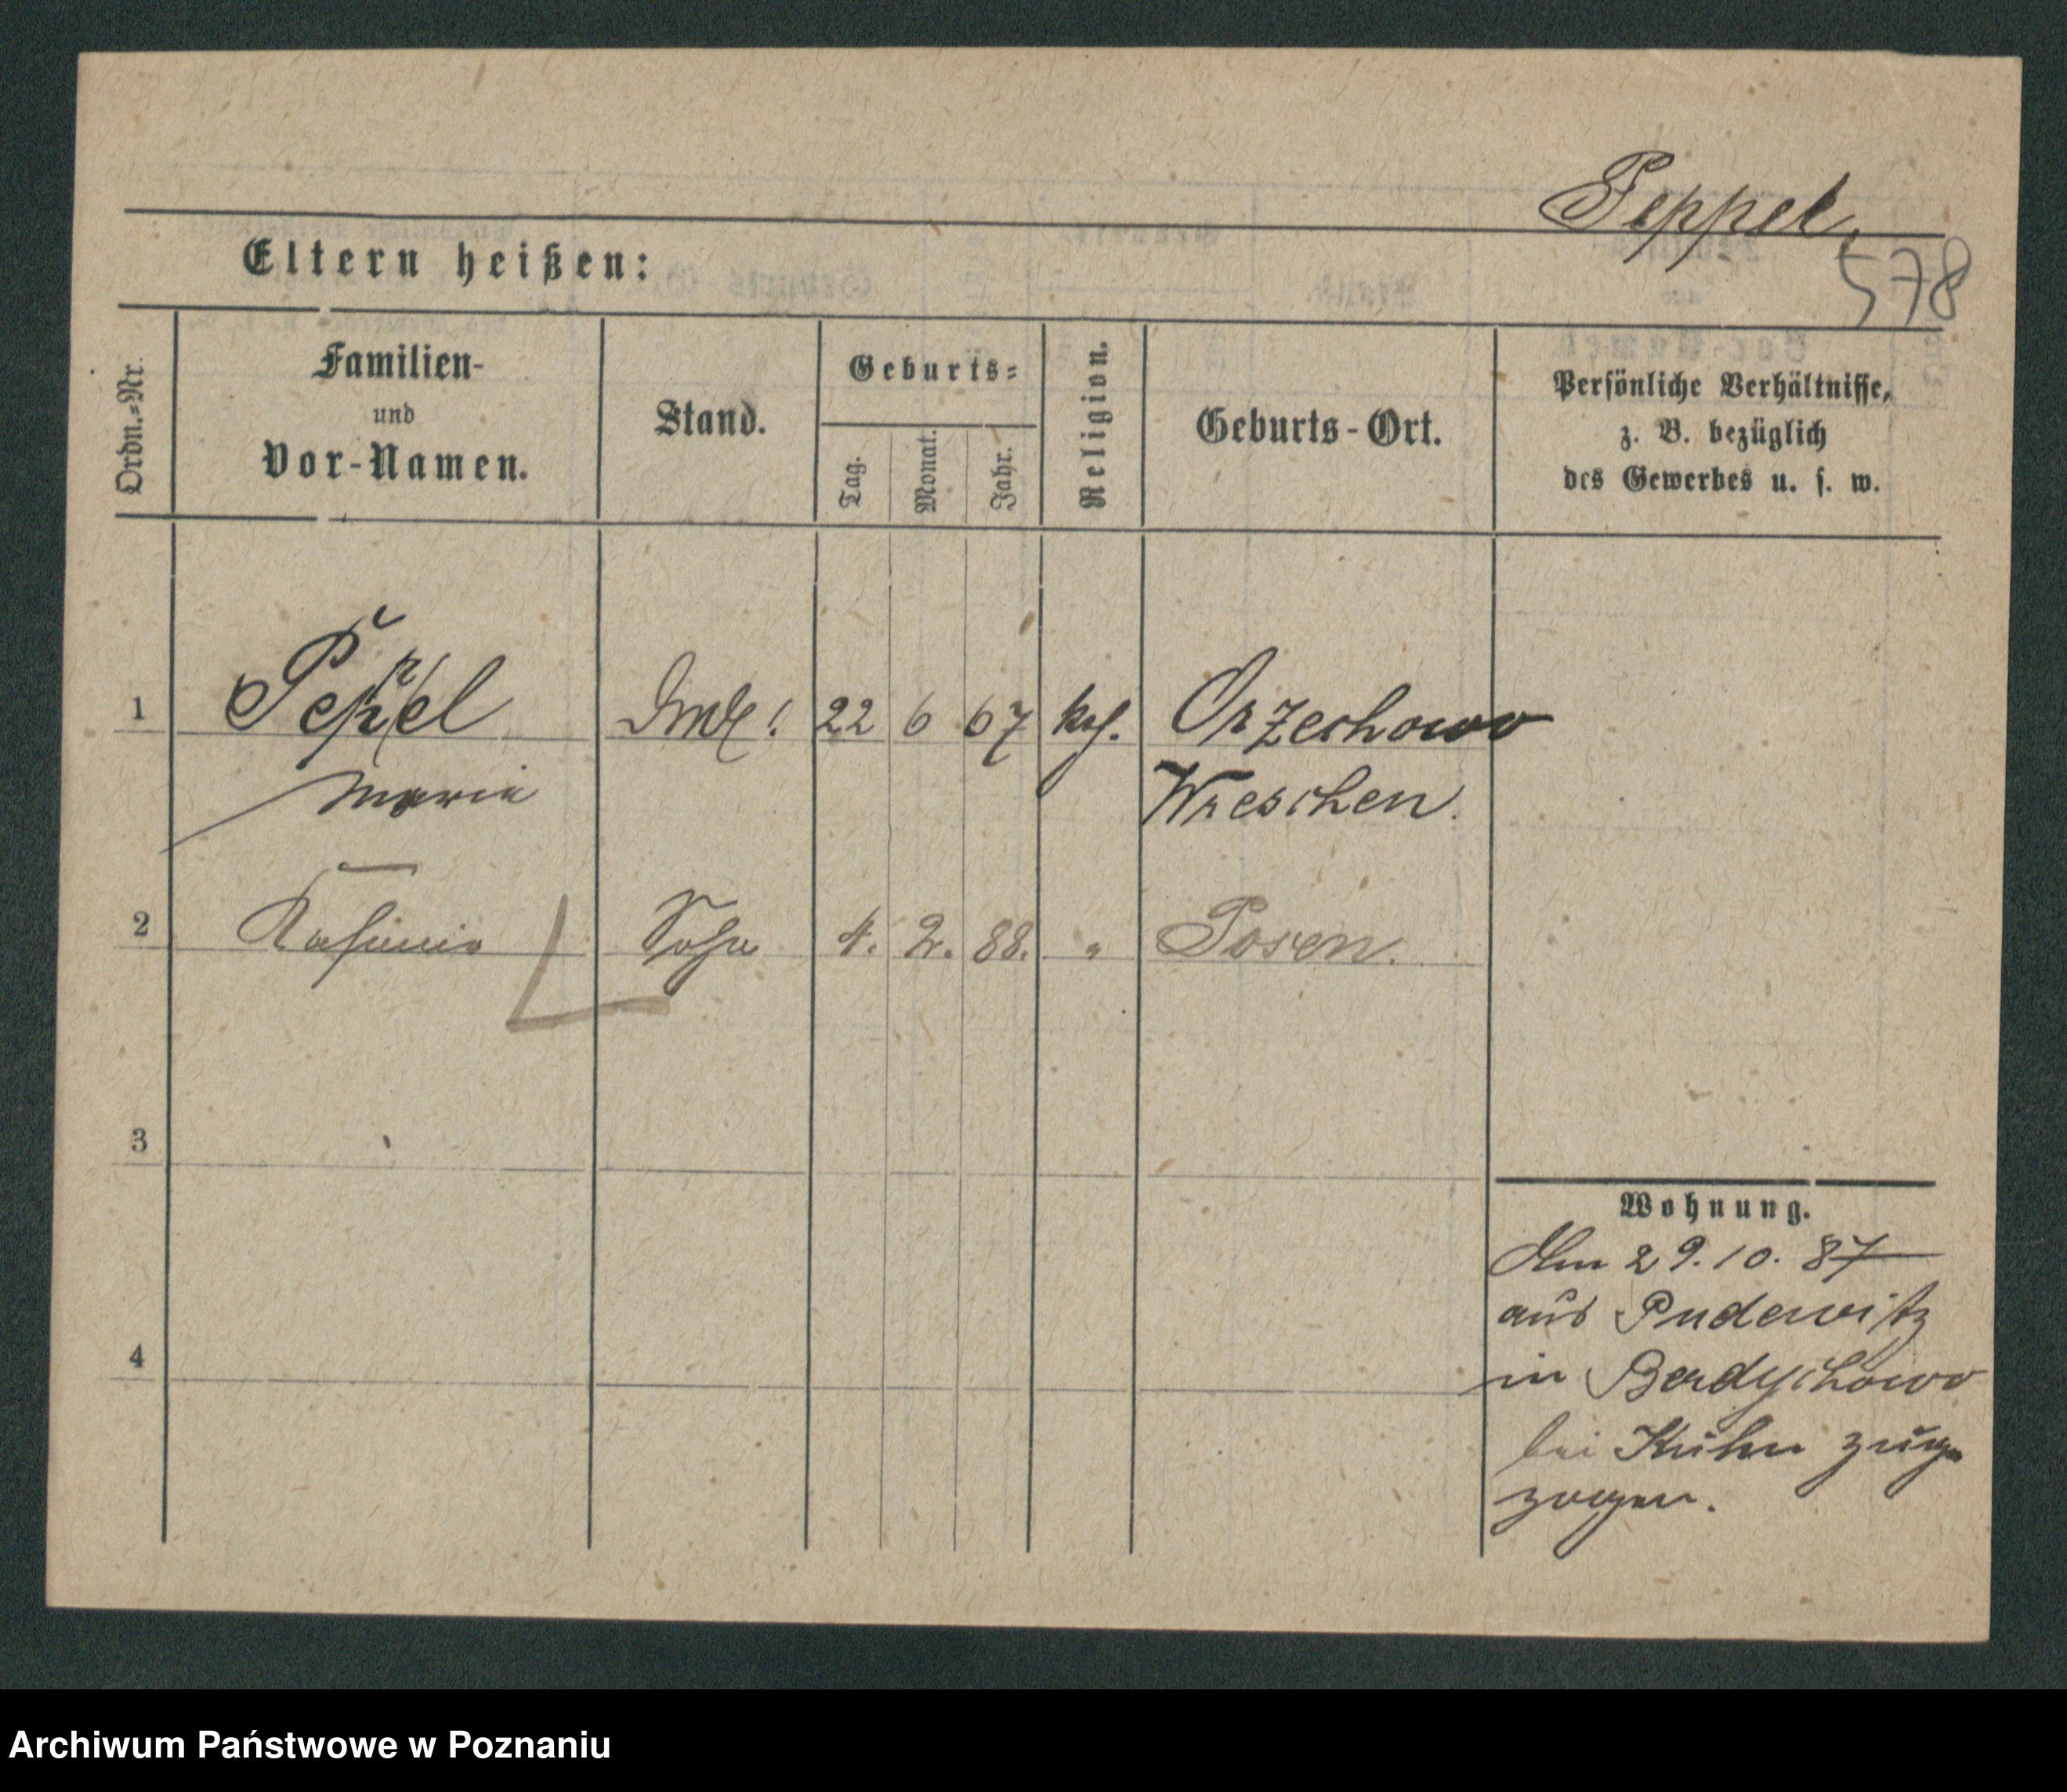 Peppel,
578
Eltern heißen:
Ordn.=Nr.
Familien-
und
Vor-Namen.
Stand.
Geburts=
Tag.
Monat.
Jahr.
Religion.
Geburts-Ort.
Persönliche Verhältnisse,
z. B. bezüglich
des Gewerbes u. s. w.
1 Peppel 22 6 67 kath. Orzechowo
Marie Wreschen.
2 Kasimir Sohn 4. 2. 88. " Posen.
3
4
Wohnung.
Am 29.10.87
aus Pudewitz
in Berdychowo
bei Kühn zuge
zogen.
Archiwum Państwowe w Poznaniu